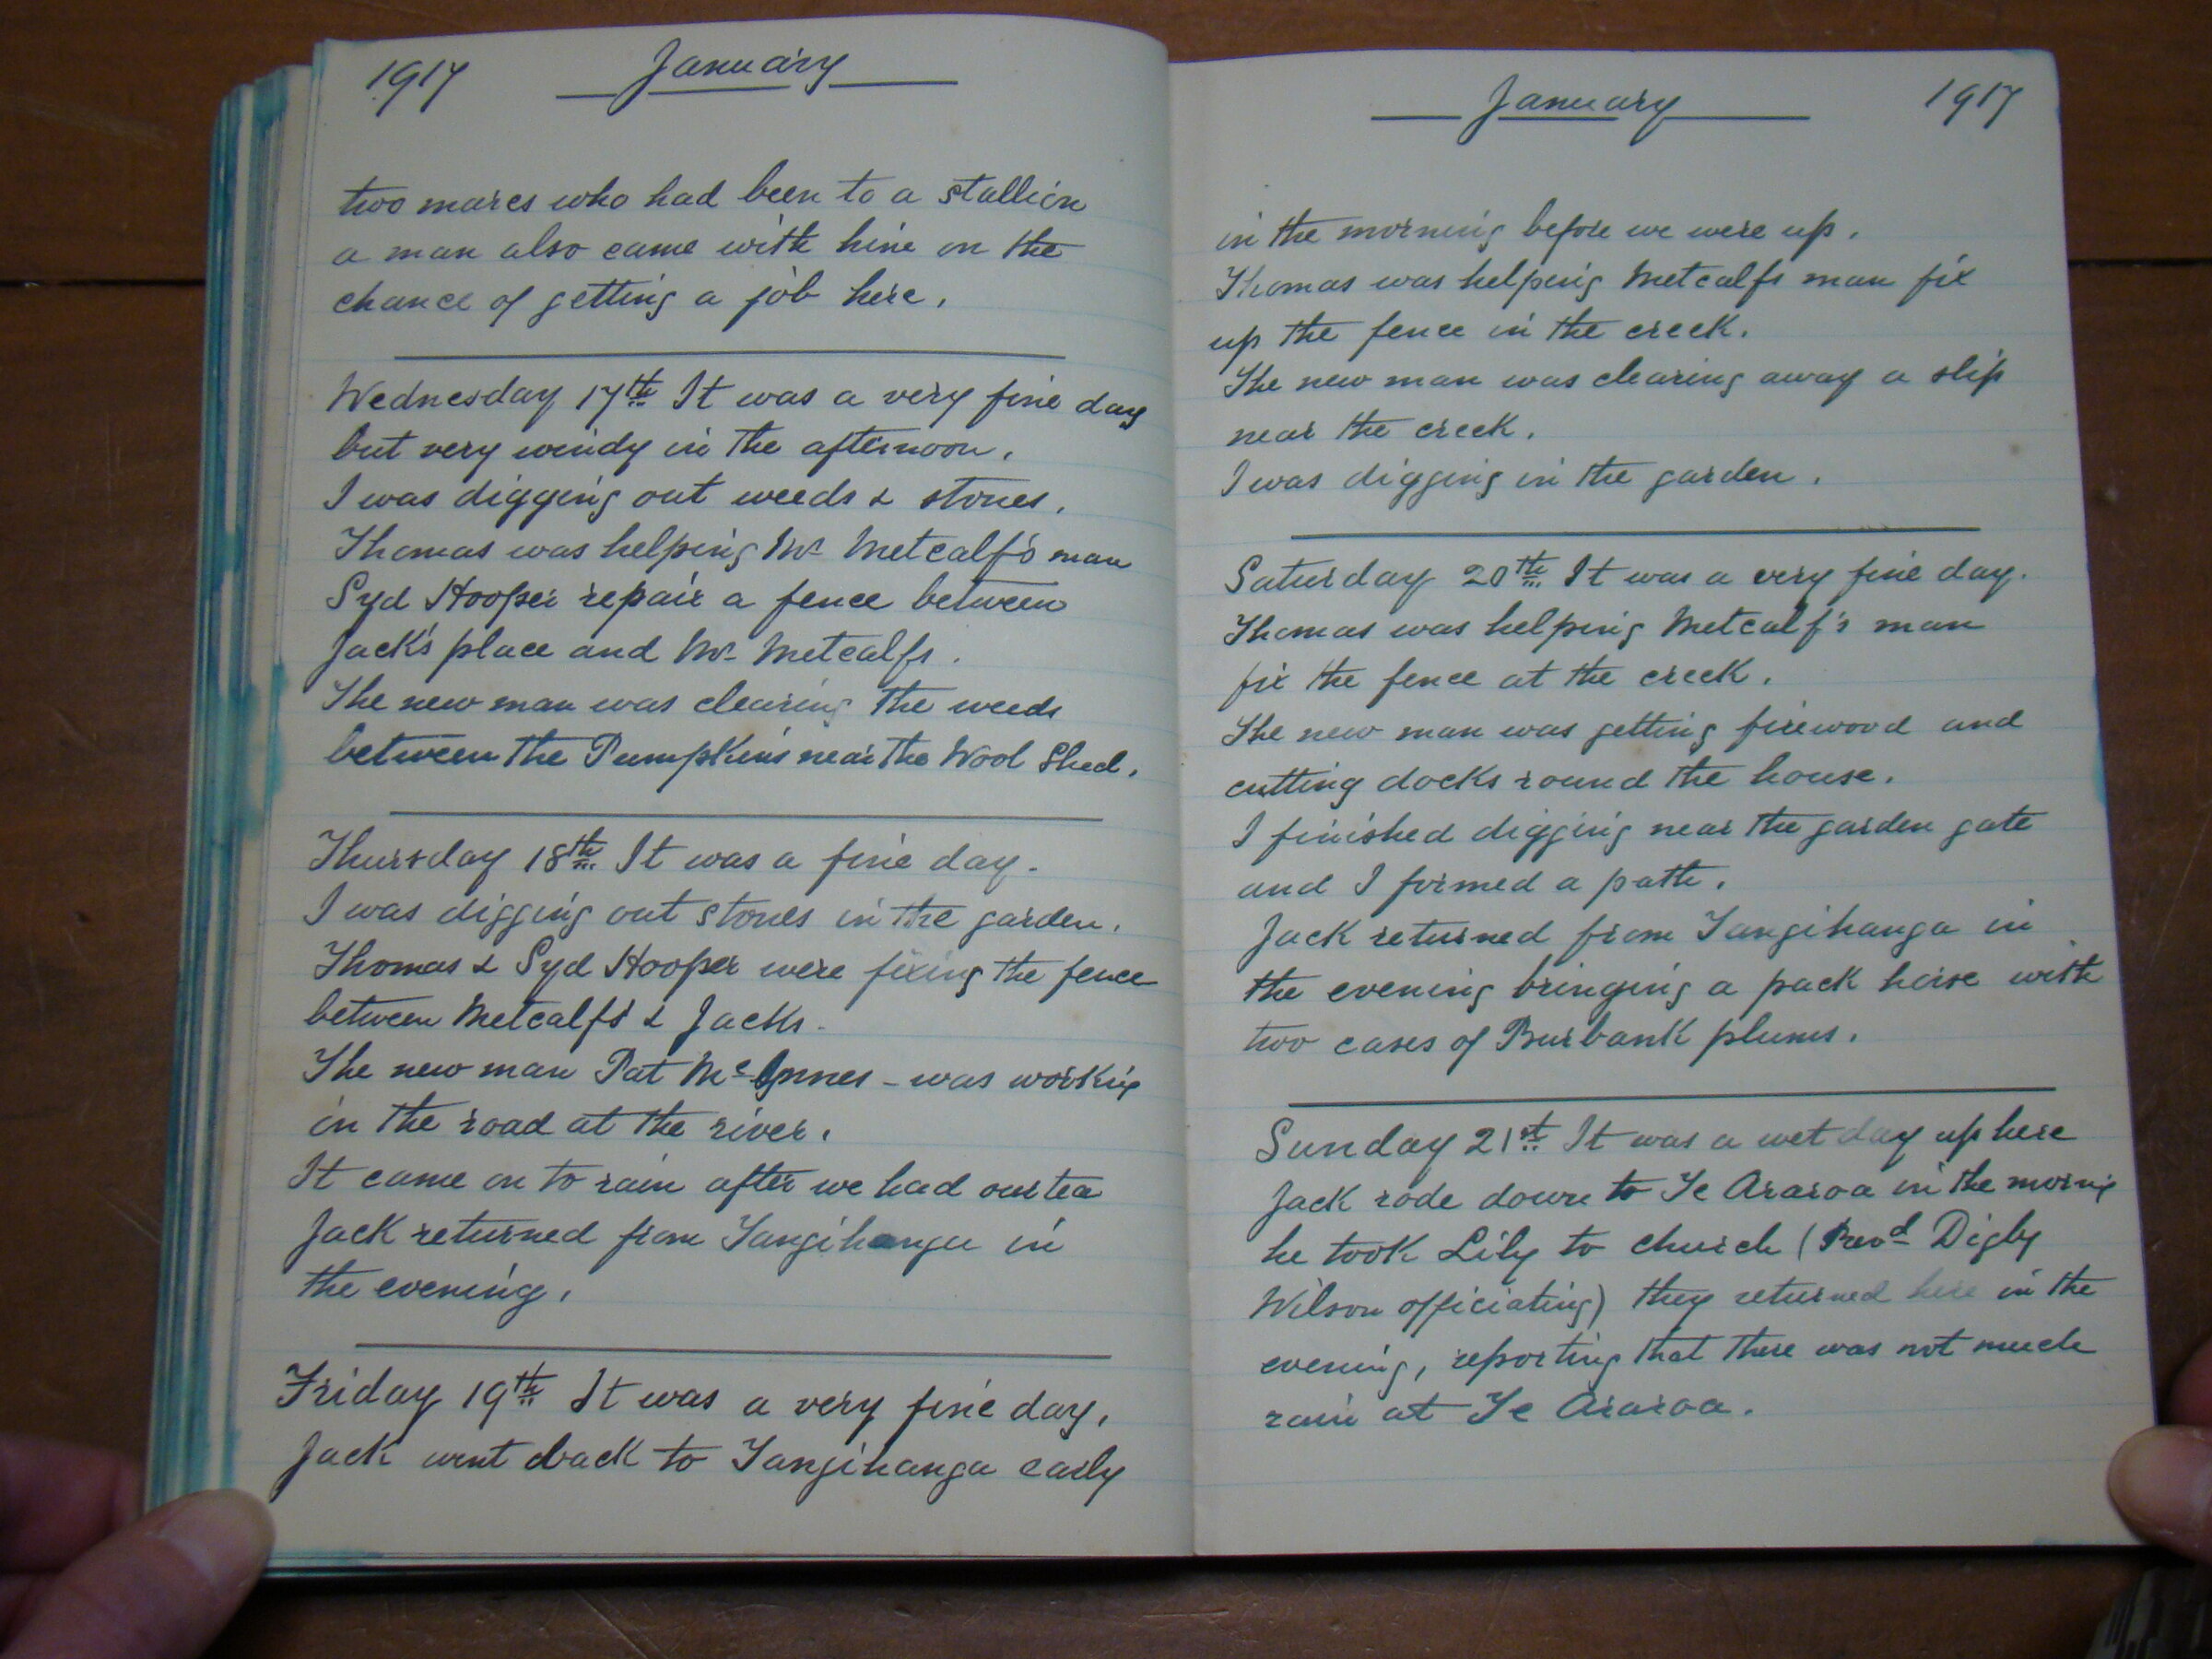 1917 January
two mares who had been to a stallion
a man also came with him on the
chance of getting a job here.
Wednesday 17th It was a very fine day
but very windy in the afternoon.
I was digging out weeds & stones.
Thomas was helping Mr Metcalf's man
Syd Hooper repair a fence between
Jack's place and Mr Metcalfs.
The new man was clearing the weeds
between the Pumpkins near the Wool Shed.
Thursday 18th It was a fine day.
I was digging out stones in the garden.
Thomas & Syd Hooper were fixing the fence
between Metcalfs & Jacks.
The new man Pat McInnes - was working
in the road at the river.
It came on to rain after we had our tea
Jack returned from Tangihanga in
the evening.
Friday 19th It was a very fine day.
Jack went back to Tangihanga early
January 1917
in the morning before we were up.
Thomas was helping Metcalfs man fix
up the fence in the creek.
The new man was clearing away a slip
near the creek.
I was digging in the garden.
Saturday 20th It was a very fine day.
Thomas was helping Metcalf's man
fix the fence at the creek.
The new man was getting firewood and
cutting docks round the house.
I finished digging near the garden gate
and I formed a path.
Jack returned from Tangihanga in
the evening bringing a pack horse with
two cases of Burbank plums.
Sunday 21st It was a wet day up here
Jack rode down to Te Araroa in the morning
he took Lily to church (Revd Digby
Wilson officiating) they returned here in the
evening, reporting that there was not much
rain at Te Araroa.